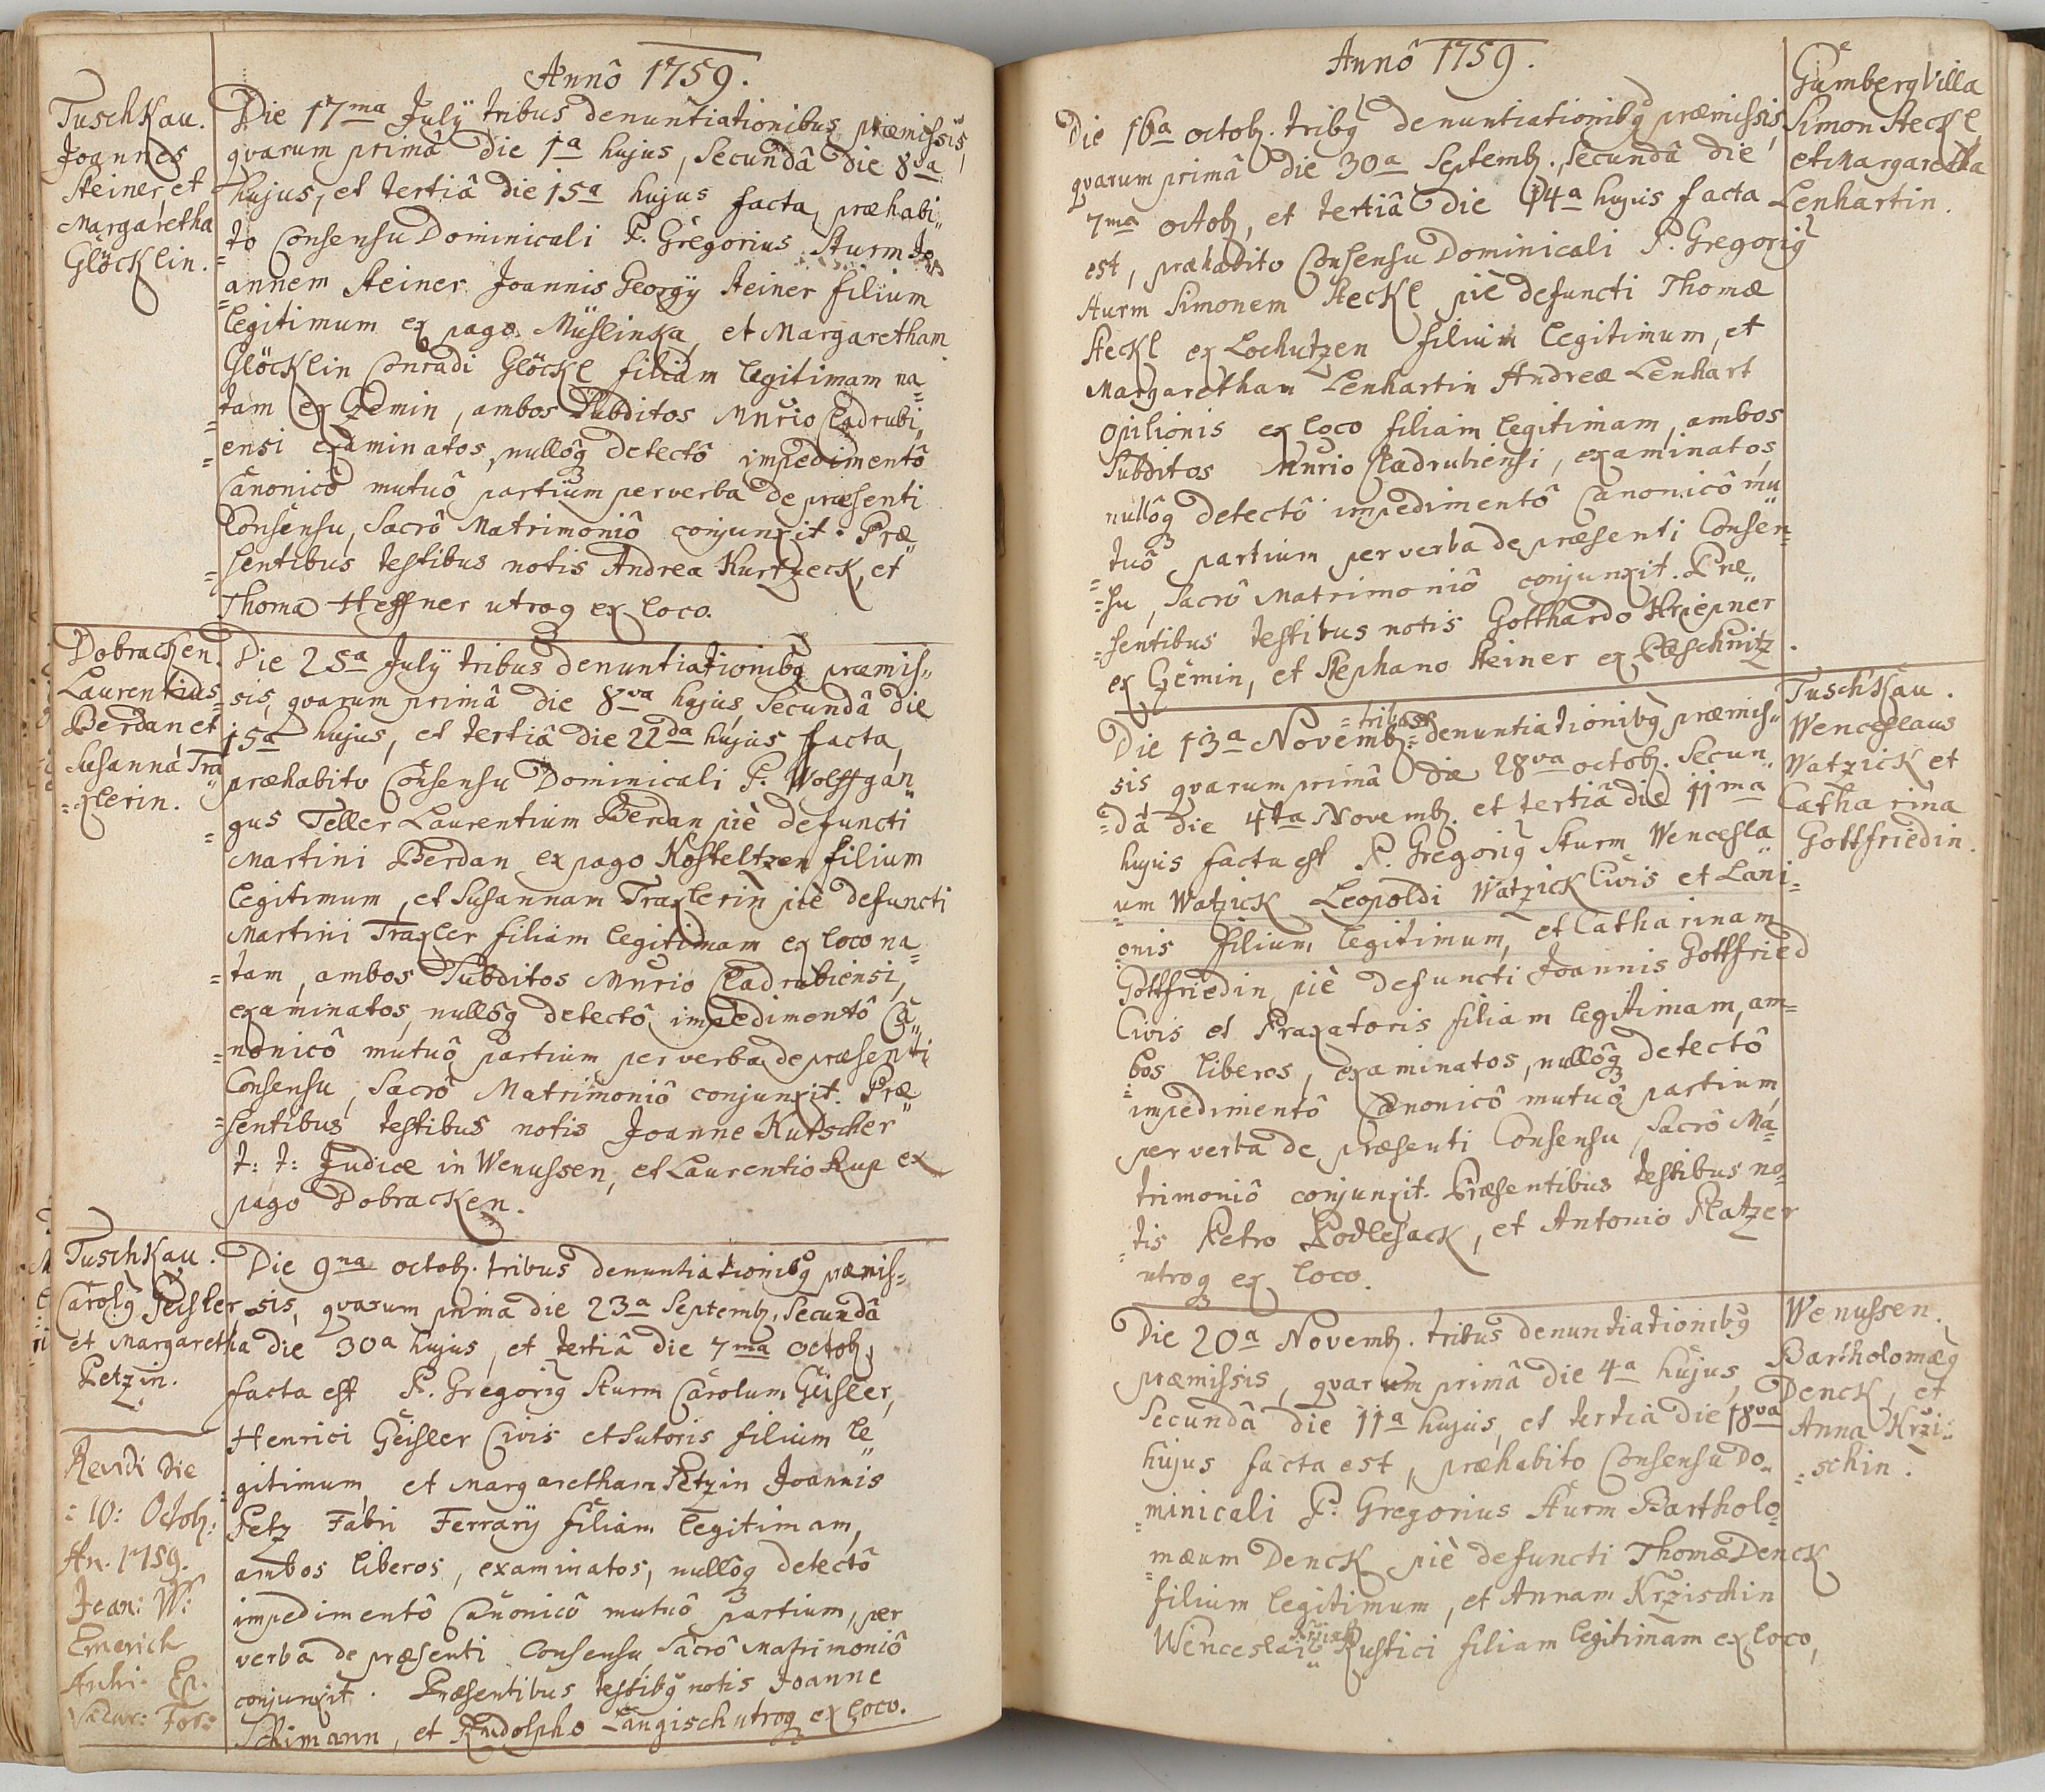 Annô 1759.
Tuschkau.
Joannes
Steiner, et
Margaretha
Glöcklin.
Die 17ma July tribus denuntiationibus præmissis,
qvarum primâ die 1a hujus, Secundâ die 8va
hujus, et tertiâ die 15a hujus facta, præhabi„
to Consensu Dominicali P. Gregorius Sturm Jo„
annem Steiner Joannis Georgÿ Steiner filium
legitimum ex pago Müslinka, et Margaretham
Glöcklin Conradi Glöckl filiam legitimam na„
tam ex Gemin, ambos Subditos Mnrio Cladrubi„
ensi examinatos, nullôq detectô impedimentô
Canonicô mutuô partium per verba de præsenti
Consensu, Sacrô Matrimoniô conjunxit. Præ„
sentibus testibus notis Andrea Kurtzeck, et
Thoma Heffner utroq ex loco.
Dobracken.
Laurentius
Berdan et
Susanna Tra„
xlerin.
Die 25a July tribus denuntiationibq præmis„
sis, qvarum primâ die 8va hujus, Secundâ die
15a hujus, et tertiâ die 22da hujus facta,
præhabito Consensu Dominicali P. Wolffgan„
gus Teller Laurentium Berdan piè defuncti
Martini Berdan ex pago Kosteltzen filium
legitimum, et Susannam Traxlerin piè defuncti
Martini Traxler filiam legitimam ex loco na„
tam, ambos Subditos Mnrio Cladrubiensi,
examinatos, nullôq detectô impedimentô Ca„
nonicô mutuô partium per verba de præsenti
Consensu, Sacrô Matrimoniô conjunxit. Præ„
sentibus testibus notis Joanne Kutscher
t: t: Judice in Wenussen, et Laurentio Rup ex
pago Dobracken.
Tuschkau.
Carolq Geisler
et Margaretha
Petzin.
Die 9na octob. tribus denuntiationibq præmis„
sis, qvarum prima die 23a Septemb, Secundâ
die 30a hujus, et tertiâ die 7ma octob,
facta est P. Gregoriq Sturm Carolum Geisler,
Henrici Geisler Civis et Sutoris filium le„
gitimum, et Margaretham Petzin Joannis
Petz Fabri Ferrarÿ filiam legitimam,
ambos liberos, examinatos, nullôq detectô
impedimentô Canonicô mutuô partium, per
verba de præsenti Consensu, Sacrô Matrimoniô
conjunxit. Præsentibus testibq notis Joanne
Schimann, et Rudolpho Langisch utroq ex loco.
Revidi die
10: Octob:
An. 1759.
Joan: W:
Emerich
Annô 1759.
Die 16a octob. tribq denuntiationibq præmissis,
qvarum primâ die 30a Septemb. Secundâ die
7ma octob, et tertiâ die 14a hujus facta
est, præhabito Consensu Dominicali P. Gregoriq
Sturm Simonem Steckl piè defuncti Thomæ
Steckl ex Lochutzen filium legitimum, et
Margaretham Lenhartin Andreæ Lenhart
opilionis ex loco filiam legitimam, ambos
Subditos Mnrio Cladrubiensi, examinatos,
nullôq detectô impedimentô Canonicô mu„
tuô partium per verba de præsenti Consen„
su, Sacrô Matrimoniô conjunxit. Præ„
sentibus testibus notis Gotthardo Kriepner
ex Gemin, et Stephano Steiner ex Piaschnitz.
Gumberg Villa
Simon Steckl
et Margaretha
Lenhartin.
Die 13a Novemb. tribus denuntiationibq præmis„
sis qvarum primâ die 28va octob. Secun„
dâ die 4ta Novemb. et tertiâ die 11ma
hujus facta est P. Gregoriq Sturm Wencesla„
um Watzick Leopoldi Watzick Civis et Lani„
onis filium legitimum, et Catharinam
Gottfriedin piè defuncti Joannis Gottfried
Civis et Braxatoris filiam legitimam, am„
bos liberos, examinatos, nullôq detectô
impedimentô Canonicô mutuô partium
per verba de præsenti Consensu, Sacrô Ma„
trimoniô conjunxit. Præsentibus testibus no„
tis Petro Podlesack, et Antonio Platzer
utroq ex loco.
Tuschkau.
Wenceslaus
Watzick et
Catharina
Gottfriedin.
Die 20a Novemb. tribus denuntiationibq
præmissis, qvarum primâ die 4a hujus,
Secundâ die 11a hujus, et tertia die 18va
hujus facta est, præhabito Consensu Do„
minicali P. Gregorius Sturm Bartholo„
mæum Denck piè defuncti Thomæ Denck
filium legitimum, et Annam Krzischin
Wenceslai Krzisch Rustici filiam legitimam ex loco,
Wenussen.
Bartholomæq
Denck, et
Anna Krzi„
schin.